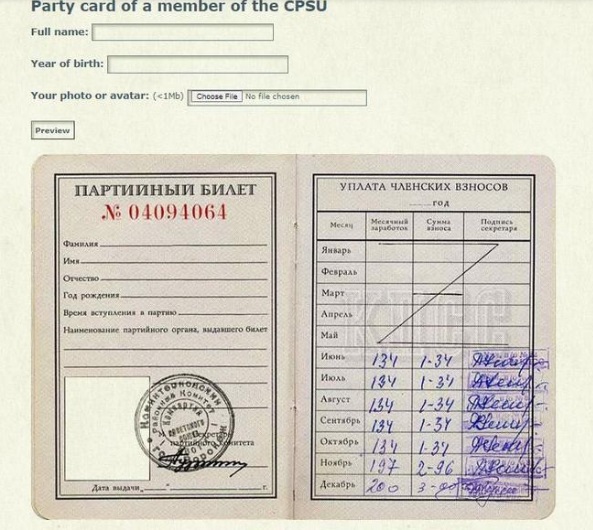 Party card of a member of the CPSU
Full name:
Year of birth:
Your photo or avatar: (<1Mb) Choose File No file chosen
Preview
ПАРТИЙНЫЙ БИЛЕТ
№ 04094064
Фамилия
Имя
Отчество
Год рождения
Время вступления в партию
Наименование партийного органа, выдавшего билет
М. П. Секретарь
партийного комитета
Дата выдачи „ “ г.
УПЛАТА ЧЛЕНСКИХ ВЗНОСОВ
год
Месяц Месячный заработок Сумма взноса Подпись секретаря
Январь
Февраль
Март
КПСС
Апрель
Май
Июнь 134 1-34
Июль 134 1-34
Август 134 1-34
Сентябрь 134 1-34
Октябрь 134 1-34
Ноябрь 197 2-96
Декабрь 200 3-00